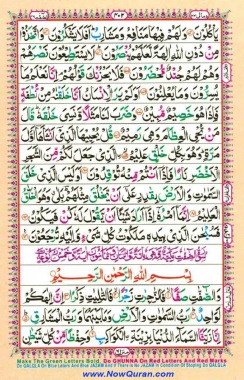 يَاْكُلُوْنَ وَلَهُمْ فِيْهَا مَنَافِعُ وَمَشَارِبُ اَفَلَا يَشْكُرُوْنَ وَاتَّخَذُوْا
مِنْ دُوْنِ اللّٰهِ اٰلِهَةً لَّعَلَّهُمْ يُنْصَرُوْنَ لَا يَسْتَطِيْعُوْنَ نَصْرَهُمْ
وَهُمْ لَهُمْ جُنْدٌ مُّحْضَرُوْنَ فَلَا يَحْزُنْكَ قَوْلُهُمْ اِنَّا نَعْلَمُ مَا
يُسِرُّوْنَ وَمَا يُعْلِنُوْنَ اَوَلَمْ يَرَ الْاِنْسَانُ اَنَّا خَلَقْنٰهُ مِنْ نُّطْفَةٍ
فَاِذَا هُوَ خَصِيْمٌ مُّبِيْنٌ وَضَرَبَ لَنَا مَثَلًا وَّنَسِيَ خَلْقَهٗ قَالَ
مَنْ يُّحْيِ الْعِظَامَ وَهِيَ رَمِيْمٌ قُلْ يُحْيِيْهَا الَّذِيْٓ اَنْشَاَهَآ اَوَّلَ
مَرَّةٍ وَهُوَ بِكُلِّ خَلْقٍ عَلِيْمٌ الَّذِيْ جَعَلَ لَكُمْ مِّنَ الشَّجَرِ
الْاَخْضَرِ نَارًا فَاِذَآ اَنْتُمْ مِّنْهُ تُوْقِدُوْنَ اَوَلَيْسَ الَّذِيْ خَلَقَ
السَّمٰوٰتِ وَالْاَرْضَ بِقٰدِرٍ عَلٰٓى اَنْ يَّخْلُقَ مِثْلَهُمْ بَلٰى وَهُوَ الْخَلّٰقُ
الْعَلِيْمُ اِنَّمَآ اَمْرُهٗٓ اِذَآ اَرَادَ شَيْـًٔا اَنْ يَّقُوْلَ لَهٗ كُنْ فَيَكُوْنُ
فَسُبْحٰنَ الَّذِيْ بِيَدِهٖ مَلَكُوْتُ كُلِّ شَيْءٍ وَّاِلَيْهِ تُرْجَعُوْنَ
بِسْمِ اللّٰهِ الرَّحْمٰنِ الرَّحِيْمِ
وَالصّٰٓفّٰتِ صَفًّا فَالزّٰجِرٰتِ زَجْرًا فَالتّٰلِيٰتِ ذِكْرًا اِنَّ اِلٰهَكُمْ
لَوَاحِدٌ رَبُّ السَّمٰوٰتِ وَالْاَرْضِ وَمَا بَيْنَهُمَا وَرَبُّ الْمَشَارِقِ
اِنَّا زَيَّنَّا السَّمَآءَ الدُّنْيَا بِزِيْنَةِ الْكَوَاكِبِ وَحِفْظًا مِّنْ كُلِّ شَيْطٰنٍ
Make The Green Letters Bold, Do GHUNNA On Red Letters And Red Marks
Do QALQLA On Blue Letters And Blue JAZAM And If There Is No JAZAM In Condition Of Stoping Do QALQLA
www.NowQuran.com